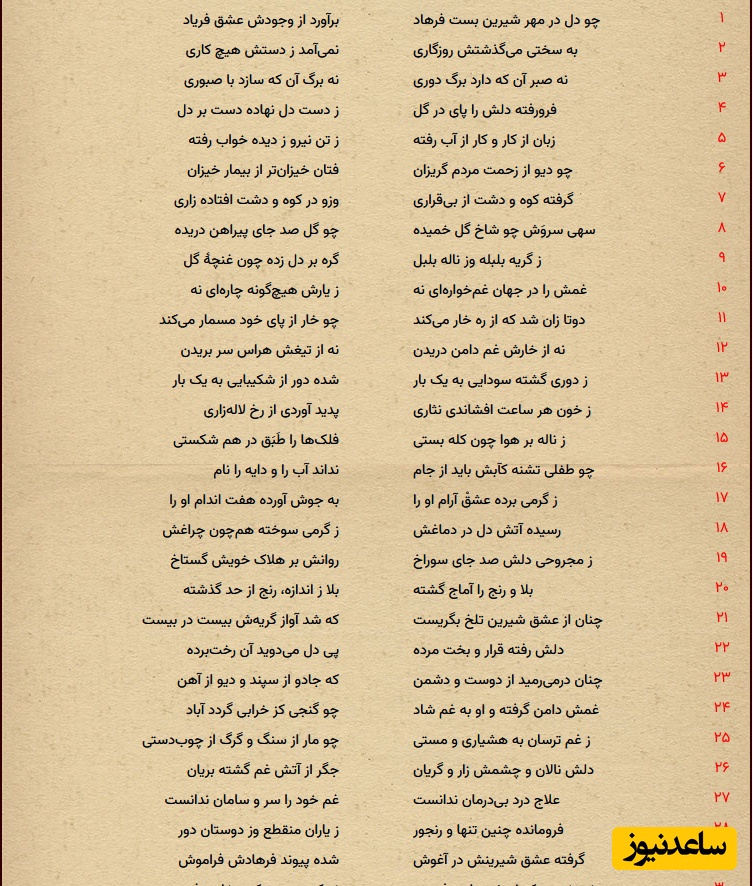 ۱ چو دل در مهر شیرین بست فرهاد برآورد از وجودش عشق فریاد
۲ به سختی می‌گذشتش روزگاری نمی‌آمد ز دستش هیچ کاری
۳ نه صبر آن که دارد برگ دوری نه برگ آن که سازد با صبوری
۴ فرورفته دلش را پای در گل ز دست دل نهاده دست بر دل
۵ زبان از کار و کار از آب رفته ز تن نیرو ز دیده خواب رفته
۶ چو دیو از زحمت مردم گریزان فتان خیزان‌تر از بیمار خیزان
۷ گرفته کوه و دشت از بی‌قراری وزو در کوه و دشت افتاده زاری
۸ سهی سروَش چو شاخ گل خمیده چو گل صد جای پیراهن دریده
۹ ز گریه بلبله وز ناله بلبل گره بر دل زده چون غنچهٔ گل
۱۰ غمش را در جهان غم‌خواره‌ای نه ز یارش هیچ‌گونه چاره‌ای نه
۱۱ دوتا زان شد که از ره خار می‌کند چو خار از پای خود مسمار می‌کند
۱۲ نه از خارش غم دامن دریدن نه از تیغش هراس سر بریدن
۱۳ ز دوری گشته سودایی به یک بار شده دور از شکیبایی به یک بار
۱۴ ز خون هر ساعت افشاندی نثاری پدید آوردی از رخ لاله‌زاری
۱۵ ز ناله بر هوا چون کله بستی فلک‌ها را طَبَق در هم شکستی
۱۶ چو طفلی تشنه کآبش باید از جام نداند آب را و دایه را نام
۱۷ ز گرمی برده عشقْ آرام او را به جوش آورده هفت اندام او را
۱۸ رسیده آتش دل در دماغش ز گرمی سوخته هم‌چون چراغش
۱۹ ز مجروحی دلش صد جای سوراخ روانش بر هلاک خویش گستاخ
۲۰ بلا و رنج را آماج گشته بلا ز اندازه، رنج از حد گذشته
۲۱ چنان از عشق شیرین تلخ بگریست که شد آواز گریه‌ش بیست در بیست
۲۲ دلش رفته قرار و بخت مرده پی دل می‌دوید آن رخت‌برده
۲۳ چنان درمی‌رمید از دوست و دشمن که جادو از سپند و دیو از آهن
۲۴ غمش دامن گرفته و او به غم شاد چو گنجی کز خرابی گردد آباد
۲۵ ز غم ترسان به هشیاری و مستی چو مار از سنگ و گرگ از چوب‌دستی
۲۶ دلش نالان و چشمش زار و گریان جگر از آتش غم گشته بریان
۲۷ علاج درد بی‌درمان ندانست غم خود را سر و سامان ندانست
۲۸ فرومانده چنین تنها و رنجور ز یاران منقطع وز دوستان دور
گرفته عشق شیرینش در آغوش شده پیوند فرهادش فراموش
ساعدنیوز